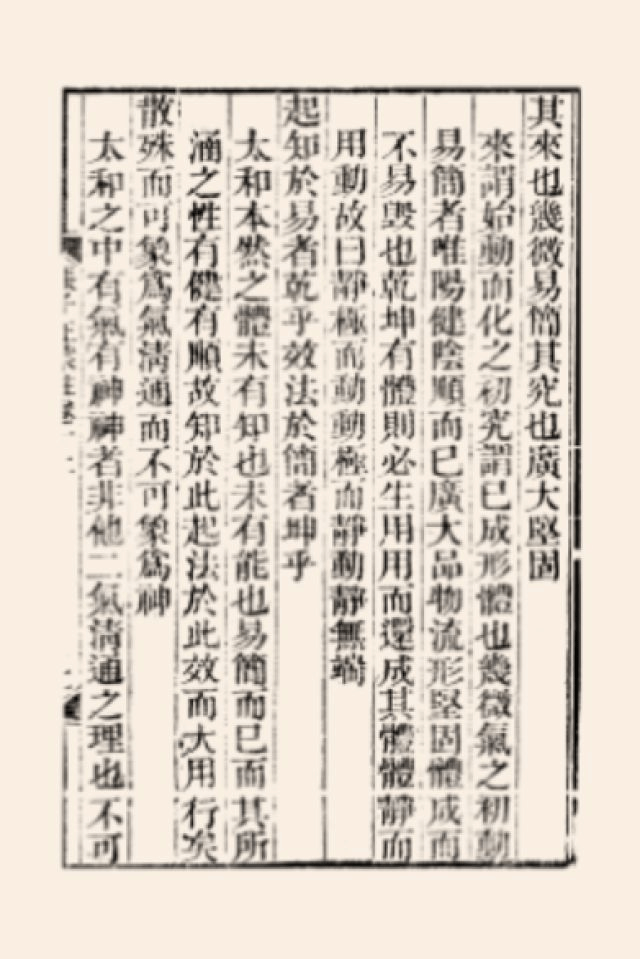 其來也幾微易簡其究也廣大堅固
來謂始動而化之初究謂已成形體也幾微氣之初動
易簡者唯陽健陰順而已廣大品物流形堅固體成而
不易毀也乾坤有體則必生用用而還成其體體靜而
用動故曰靜極而動動極而靜動靜無端
起知於易者乾乎效法於簡者坤乎
太和本然之體未有知也未有能也易簡而已而其所
涵之性有健有順故知於此起法於此效而大用行矣
散殊而可象爲氣清通而不可象爲神
太和之中有氣有神神者非他二氣清通之理也不可